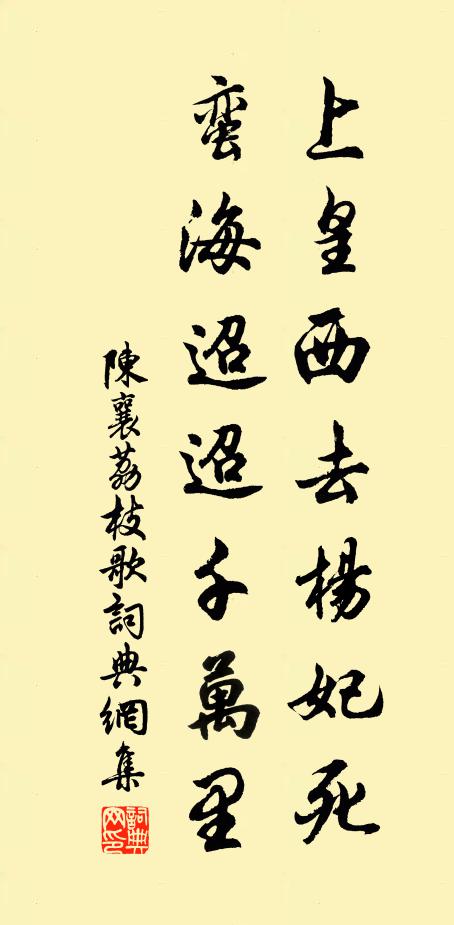 上皇西去楊妃死
蛮海迢迢千萬里
陳襄荔枝歌詞典網集
詞典網印